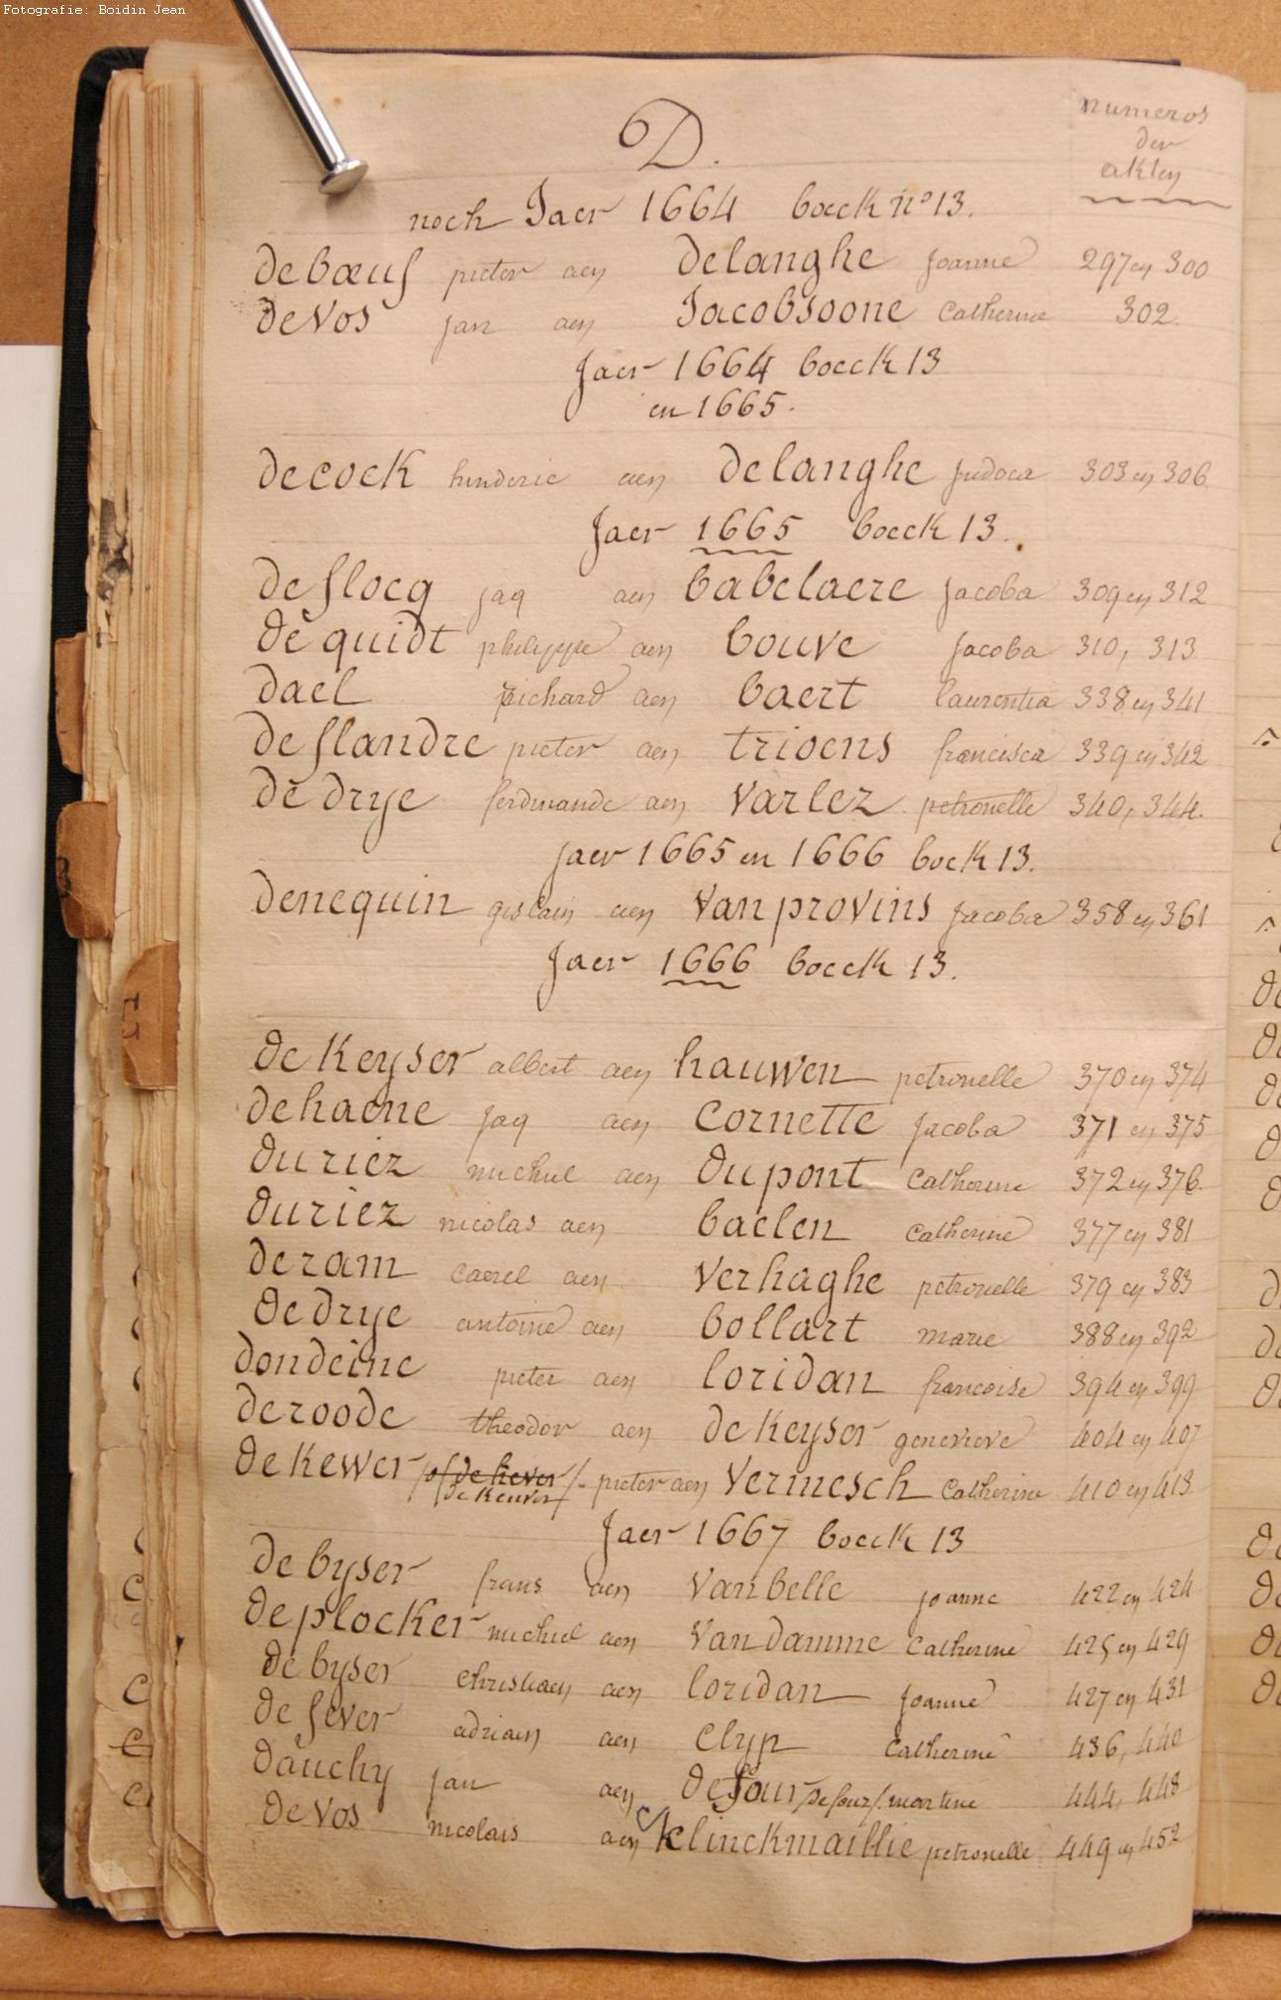 Fotografie: Boidin Jean
D.
numeros
der
akten
noch Jaer 1664 boeck n° 13.
deboeuf pieter aen delanghe joanne 297 en 300
devos jan aen Jacobsoone catherine 302
Jaer 1664 boeck 13
en 1665.
decock hinderic aen delanghe judoca 303 en 306
Jaer 1665 boeck 13.
deflocq jaq aen babelaere jacoba 309 en 312
de quidt philippe aen bouve jacoba 310, 313
dael richard aen baert laurentia 338 en 341
deflandre pieter aen trioens francisca 339 en 342
de drye ferdinande aen varlez petronelle 340, 344.
jaer 1665 en 1666 boek 13.
denequin gislain aen van provins jacoba 358 en 361
Jaer 1666 boeck 13.
de Keyser albert aen hauwen petronelle 370 en 374
dehaene jaq aen Cornette jacoba 371 en 375
duriez michiel aen dupont catherine 372 en 376.
duriez nicolas aen baelen catherine 377 en 381
deram carel aen verhaghe petronelle 379 en 383
de drye antoine aen bollart marie 388 en 392
dondeine pieter aen loridan francoise 394 en 399
deroode theodor aen de Keyser genevieve 404 en 407
de Kewer /of de kever/ pieter aen vermesch catherine 410 en 413
de keuver
Jaer 1667 boeck 13
de byser frans aen vanbelle joanne 422 en 424
de plocker michiel aen van damme catherine 425 en 429
de byser christiaen aen loridan joanne 427 en 431
de fever adriaen aen Clyp catherine 436, 440
dauchy jan aen defour /defour/ martine 444, 448
de vos nicolais aen Klinckmaillie petronelle 449 en 452